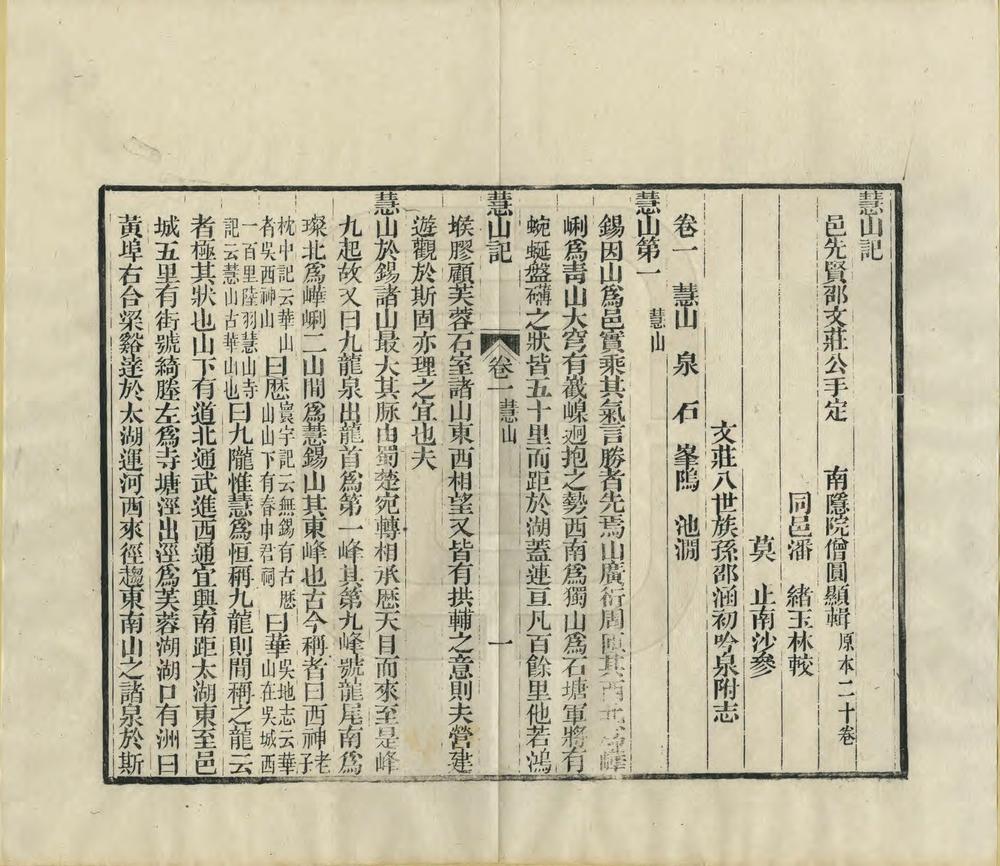 慧山記
邑先賢邵文莊公手定　南隱院僧圓顯輯原本二十卷
同邑潘　緒玉林較
莫　止南沙參
文莊八世族孫邵涵初吟泉附志
卷一　慧山　泉　石　峯隖　池澗
慧山第一　慧山
錫因山爲邑實乘其氣言勝者先焉山廣衍周 其西北 嶂
崅爲靑山大穹有巀嵲迥抱之勢西南爲獨山爲石塘軍將有
蜿蜒盤礴之狀皆五十里而距於湖蓋連亘凡百餘里他若鴻
慧山記　卷一　慧山　一
堠膠顧芙蓉石室諸山東西相望又皆有拱輔之意則夫營建
遊觀於斯固亦理之宜也夫
慧山於錫諸山最大其脉由蜀楚宛轉相承歷天目而來至是峰
九起故又曰九龍泉出龍首爲第一峰其第九峰號龍尾南爲
璨北爲嶂崅二山間爲慧錫山其東峰也古今稱者曰西神老子
枕中記云華山
者吳西神山曰歷山寰宇記云無錫有古歷
山山下有春申君祠曰華山吳地志云華
山在吳城西
一百里陸羽慧山寺
記云慧山古華山也曰九隴惟慧爲恒稱九龍則間稱之龍云
者極其狀也山下有道北通武進西通宜興南距太湖東至邑
城五里有街號綺塍左爲寺塘涇出涇爲芙蓉湖湖口有洲曰
黃埠右合梁谿達於太湖運河西來徑趨東南山之諸泉於斯